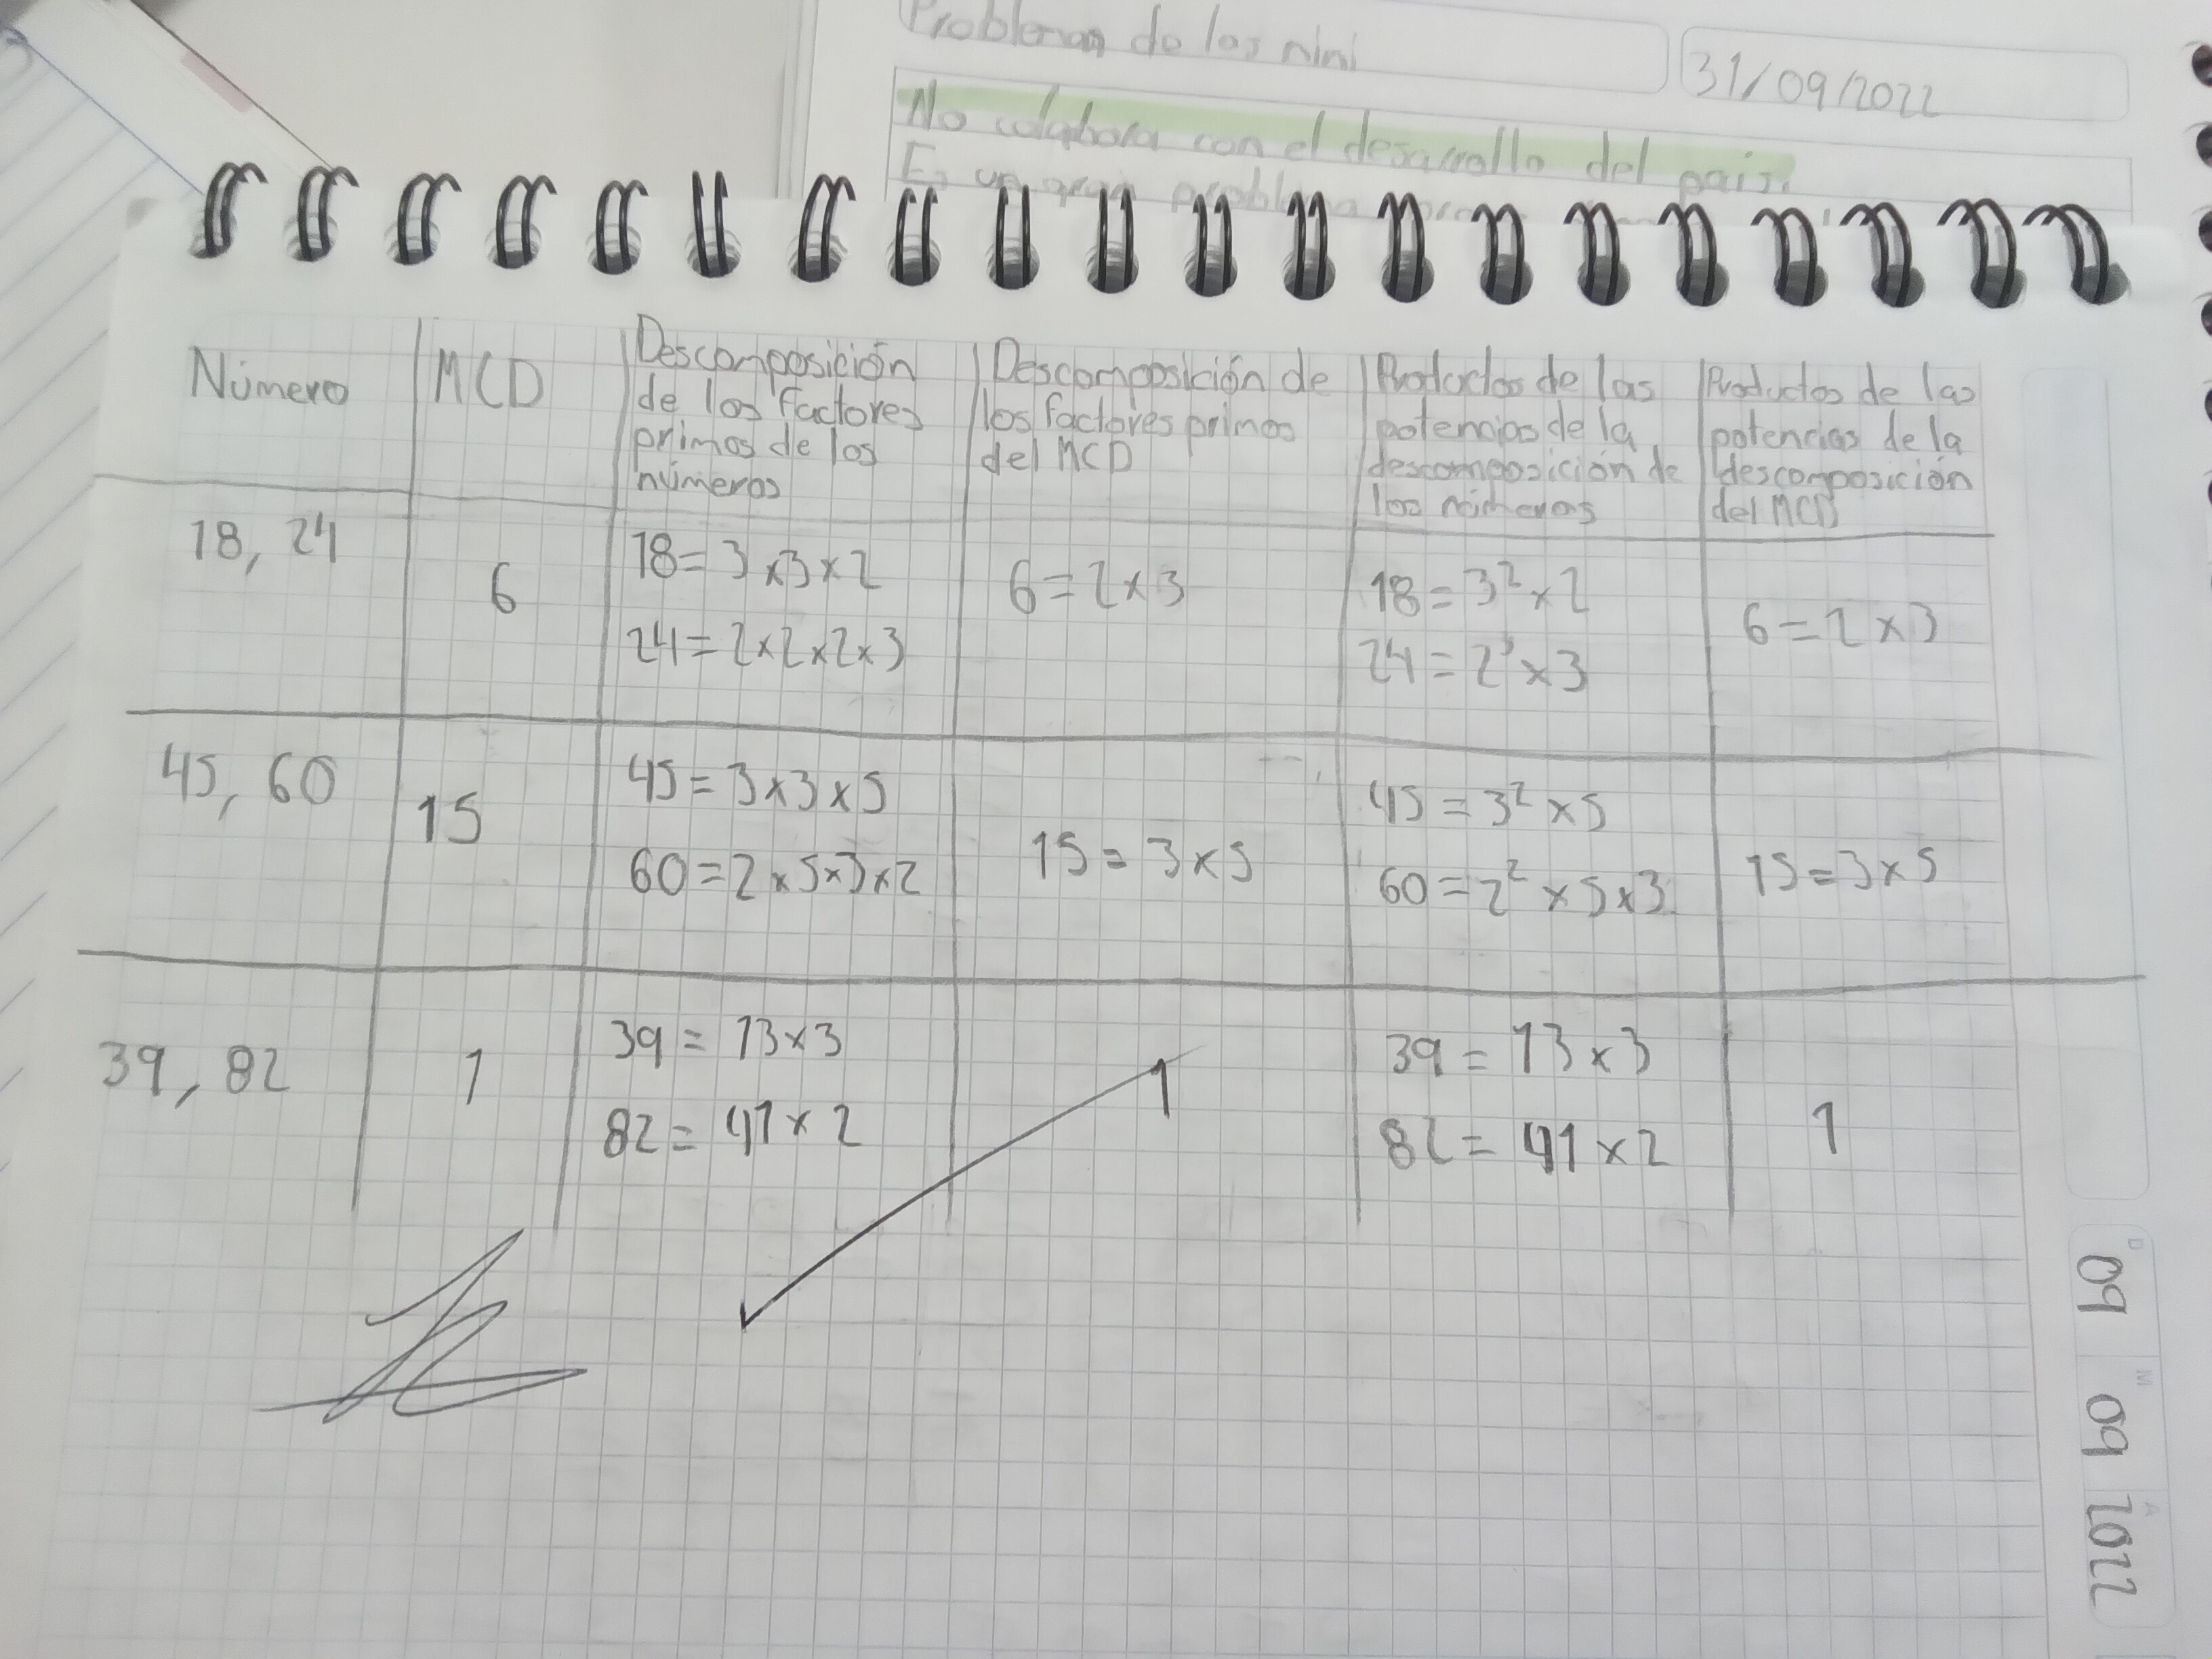 Problemas de los nini
31/09/2022
No colabora con el desarrollo del pais.
Es un gran problema
Número
MCD
Descomposición
de los factores
primos de los
números
Descomposición de
los factores primos
del MCD
Productos de las
potencias de la
descomposición de
los números
Productos de las
potencias de la
descomposición
del MCD
18, 24
6
18=3x3x2
24=2x2x2x3
6=2x3
18=3²x2
24=2³x3
6=2x3
45, 60
15
45=3x3x5
60=2x5x3x2
15=3x5
45=3²x5
60=2²x5x3
15=3x5
39, 82
1
39=13x3
82=41x2
1
39=13x3
82=41x2
1
D
09
M
09
A
2022